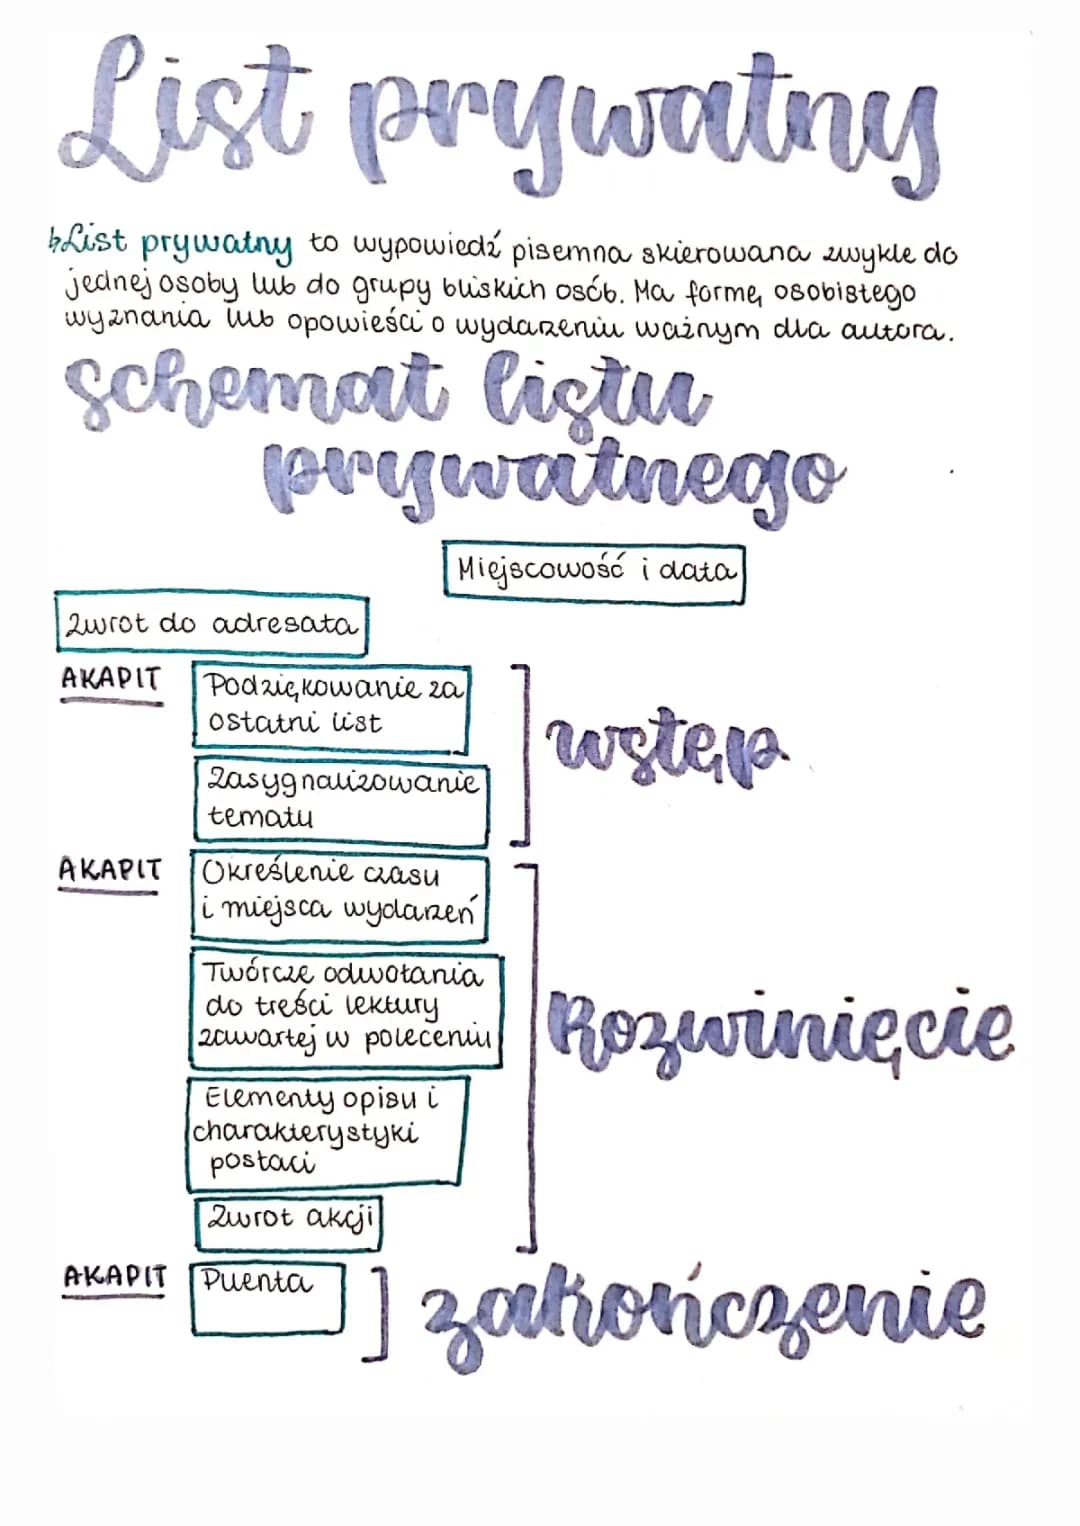 List prywatny
↳List prywatny to wypowiedź pisemna skierowana zwykle do
jednej osoby lub do grupy bliskich osób. Ma formę osobistego
wyznania lub opowieści o wydarzeniu ważnym dla autora.
schemat listu
prywatnego
Miejscowość i data
Zwrot do adresata
AKAPIT
Podziękowanie za
ostatni list
wstęp
Zasygnalizowanie
tematu
AKAPIT
Określenie czasu
i miejsca wydarzeń
Twórcze odwołania
do treści lektury
zawartej w poleceniu
Rozwinięcie
Elementy opisu i
charakterystyki
postaci
Zwrot akcji
AKAPIT
Puenta
zakończenie